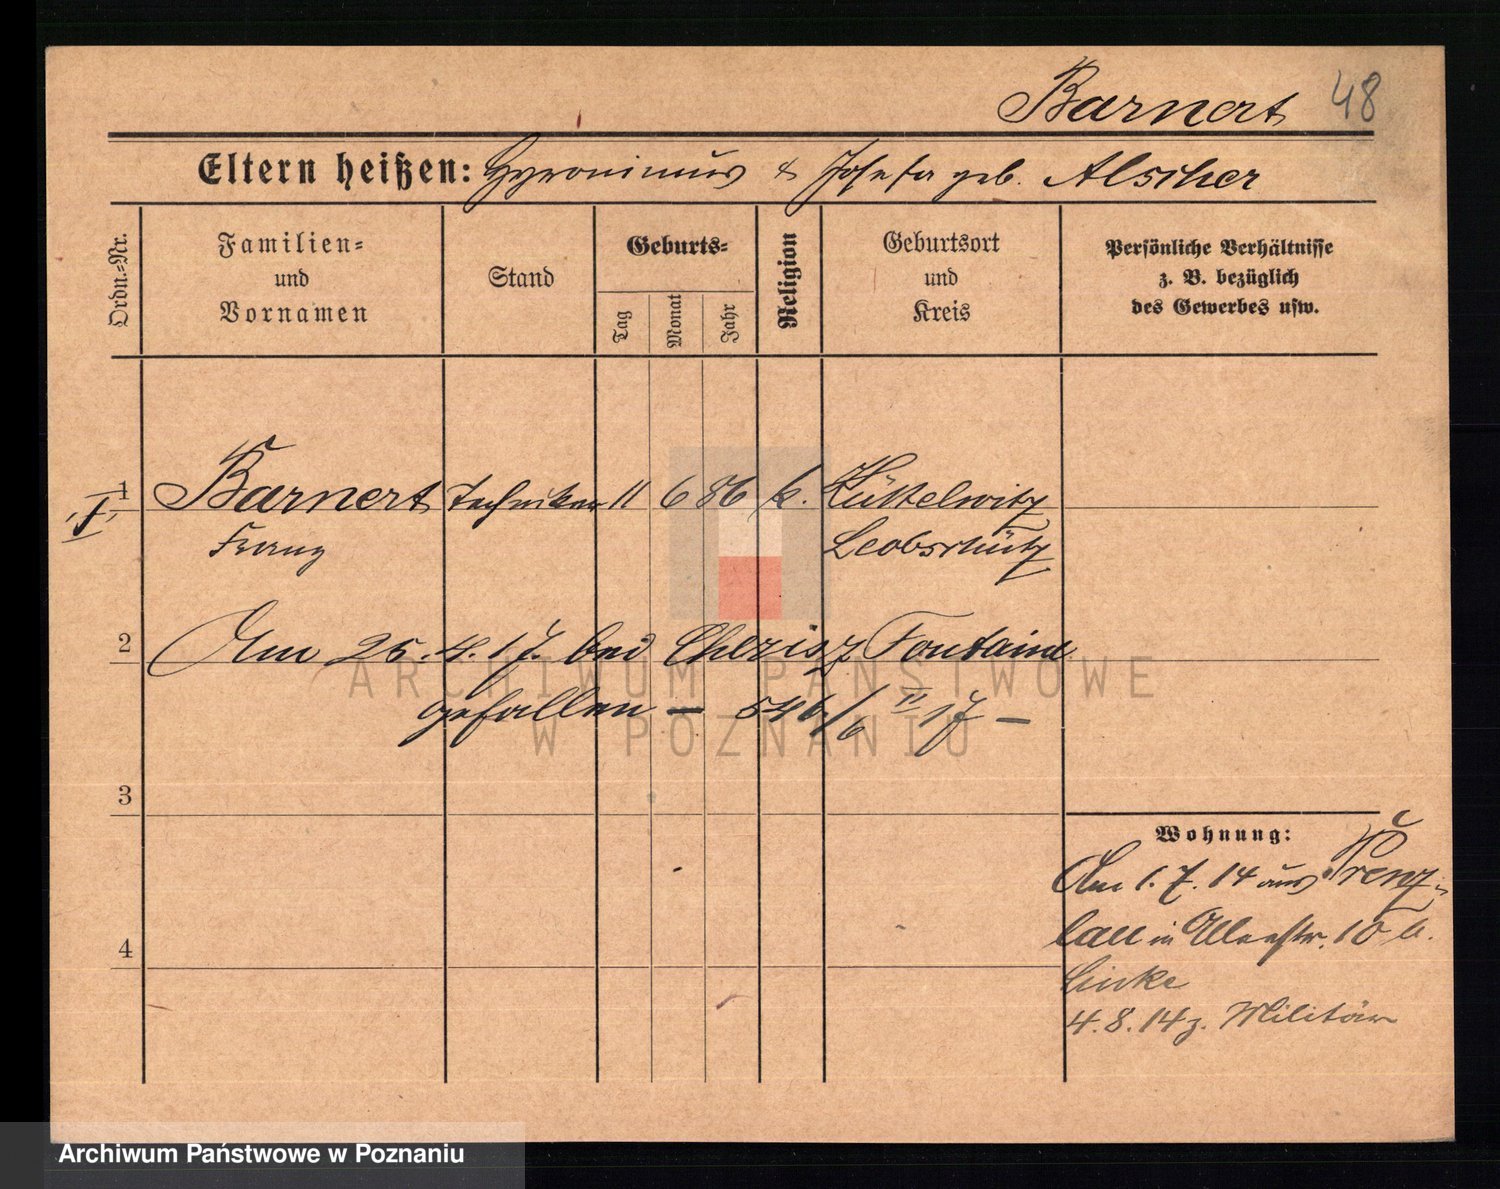 Barnert 48
Eltern heißen: Hyronimus & Josefa geb. Alscher
Ordn.=Nr.
Familien=
und
Vornamen
Stand
Geburts=
Tag
Monat
Jahr
Religion
Geburtsort
und
Kreis
Persönliche Verhältnisse
z. B. bezüglich
des Gewerbes usw.
1 Barnert Techniker 11 6 86 k. Küttelwitz
Franz Leobschütz
2 Am 25.4.17. bei Cherisy Fontaine
gefallen — 546/6 II 17 —
3
Wohnung:
Am 1.7.14 aus Prenz=
lau in Alleestr. 10 b.
4
Linke
4.8.14 z. Militär
ARCHIWUM PAŃSTWOWE
W POZNANIU
Archiwum Państwowe w Poznaniu